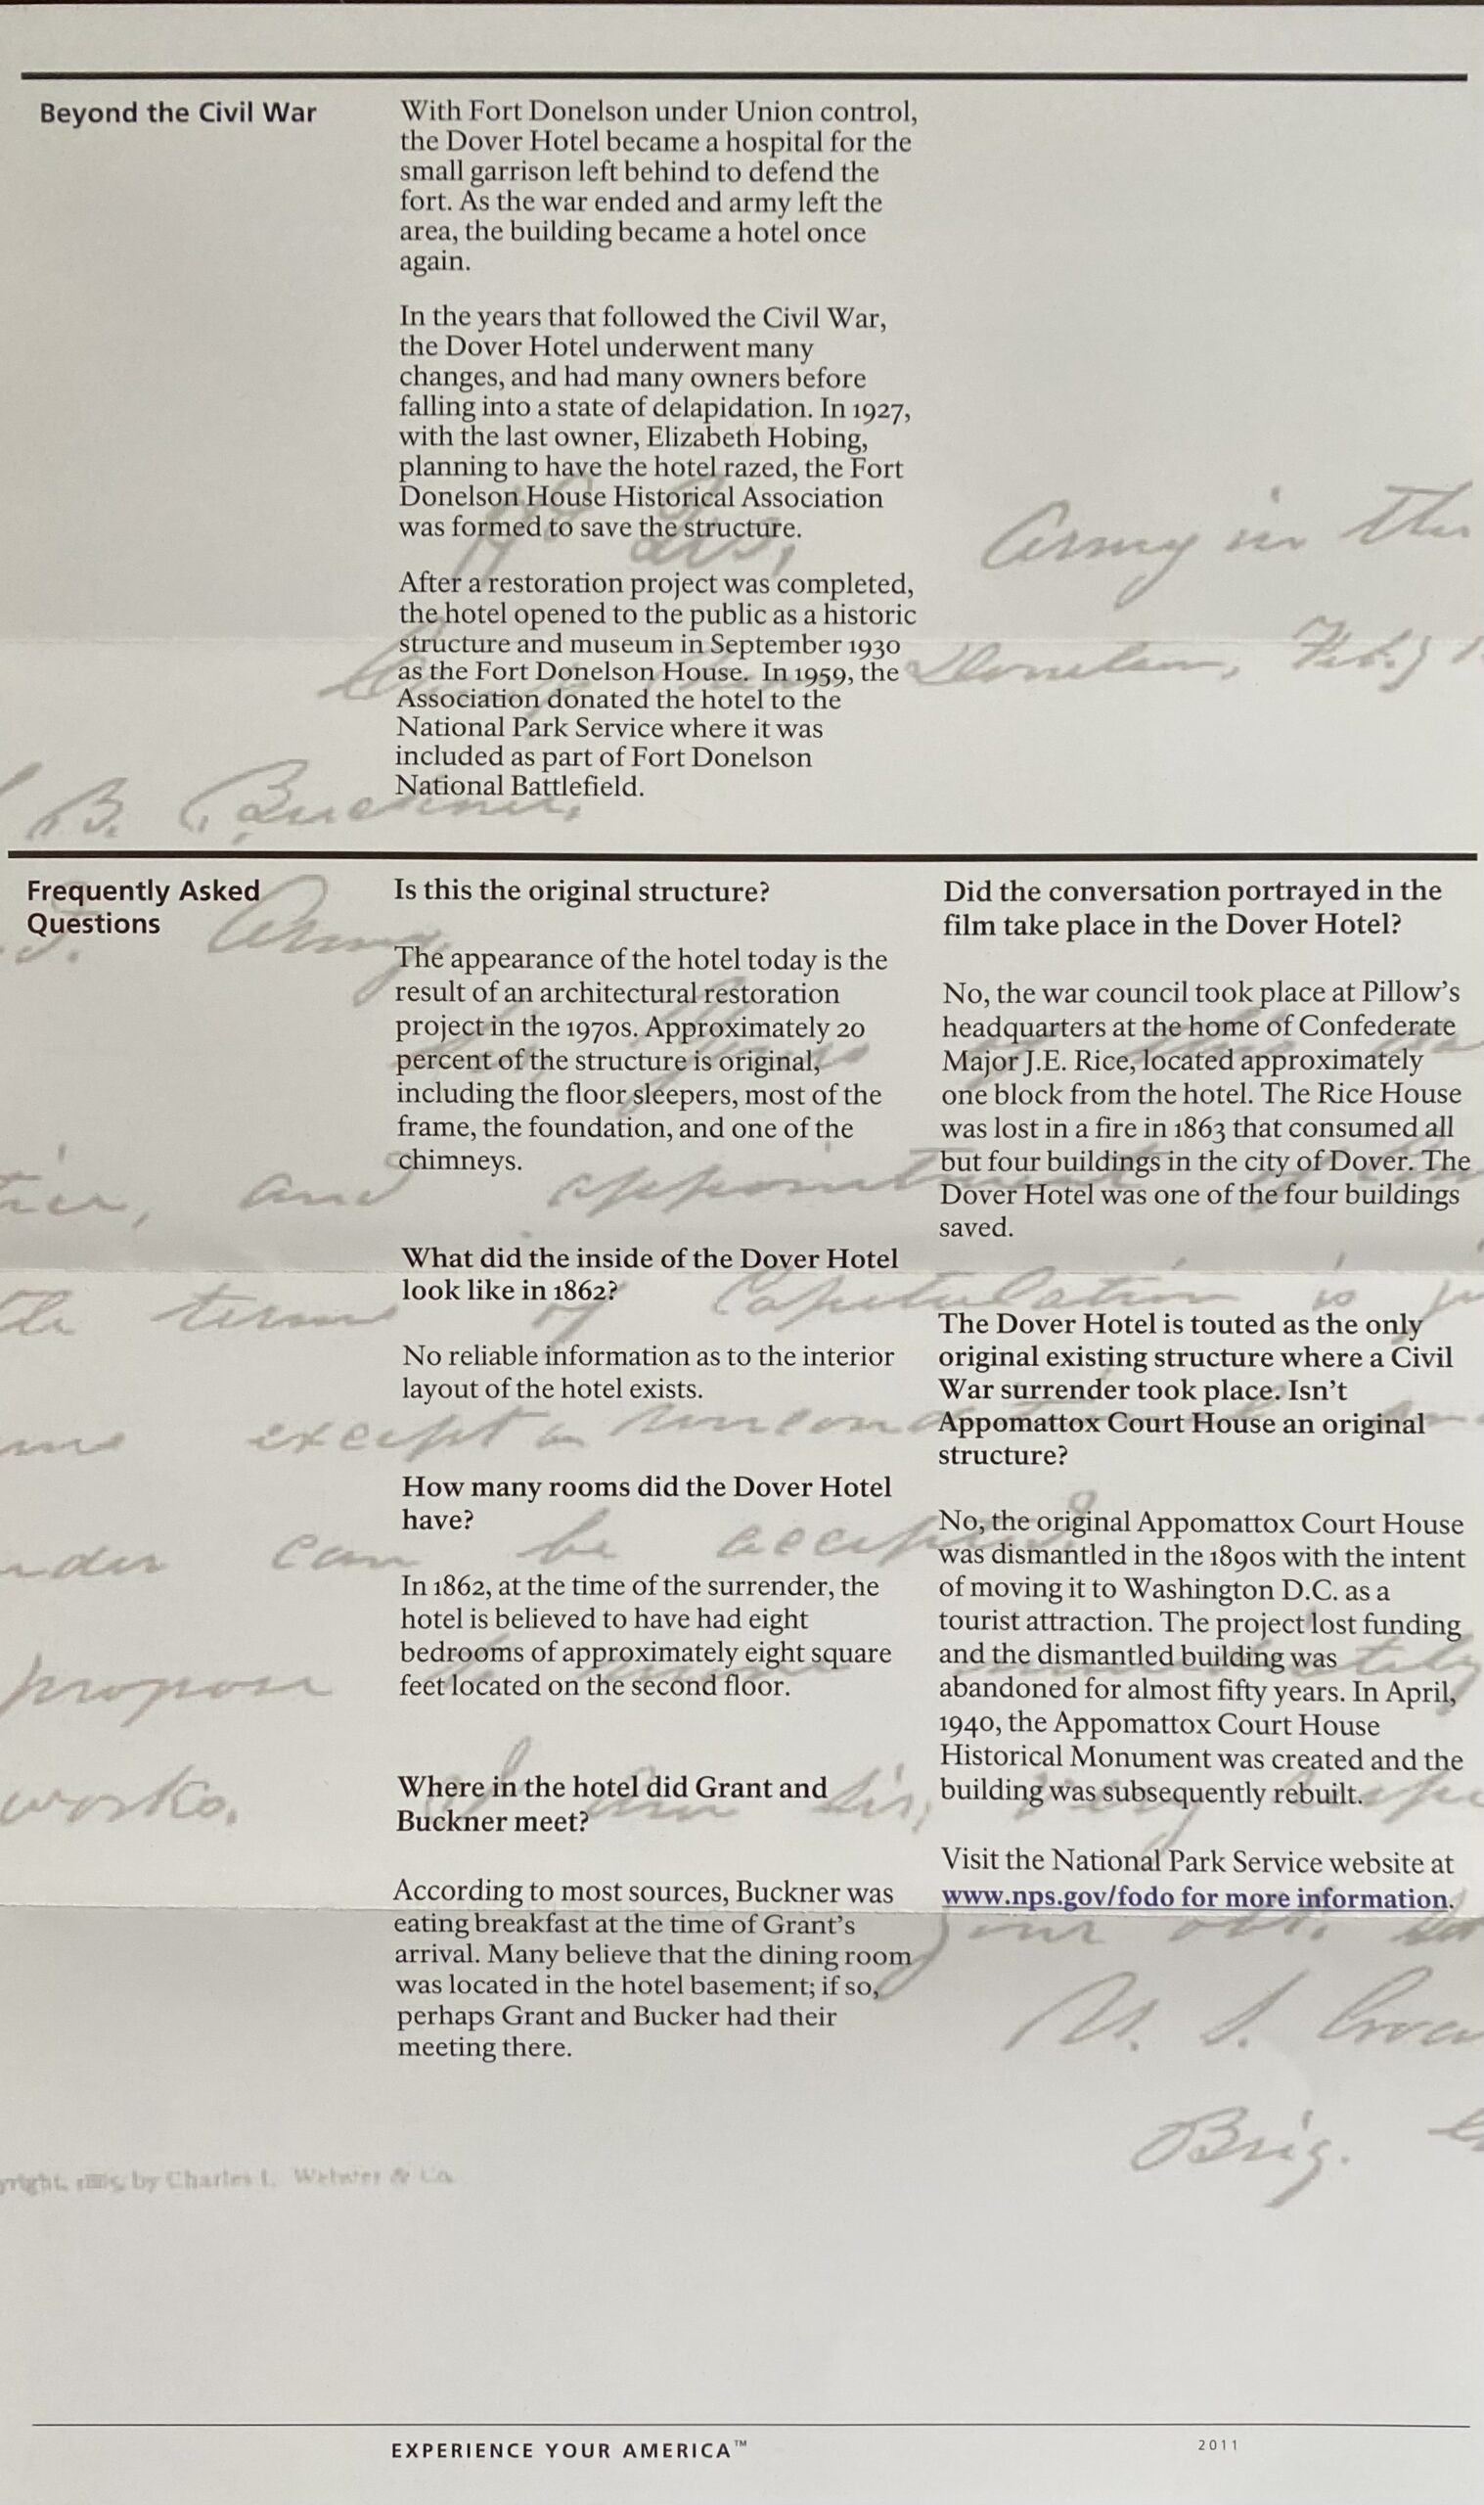 Beyond the Civil War
With Fort Donelson under Union control,
the Dover Hotel became a hospital for the
small garrison left behind to defend the
fort. As the war ended and army left the
area, the building became a hotel once
again.
In the years that followed the Civil War,
the Dover Hotel underwent many
changes, and had many owners before
falling into a state of delapidation. In 1927,
with the last owner, Elizabeth Hobing,
planning to have the hotel razed, the Fort
Donelson House Historical Association
was formed to save the structure.
After a restoration project was completed,
the hotel opened to the public as a historic
structure and museum in September 1930
as the Fort Donelson House. In 1959, the
Association donated the hotel to the
National Park Service where it was
included as part of Fort Donelson
National Battlefield.
Army in the
Donelson, Feb.
B. Buckner,
Frequently Asked
Questions
Is this the original structure?
The appearance of the hotel today is the
result of an architectural restoration
project in the 1970s. Approximately 20
percent of the structure is original,
including the floor sleepers, most of the
frame, the foundation, and one of the
chimneys.
What did the inside of the Dover Hotel
look like in 1862?
No reliable information as to the interior
layout of the hotel exists.
How many rooms did the Dover Hotel
have?
In 1862, at the time of the surrender, the
hotel is believed to have had eight
bedrooms of approximately eight square
feet located on the second floor.
Where in the hotel did Grant and
Buckner meet?
According to most sources, Buckner was
eating breakfast at the time of Grant's
arrival. Many believe that the dining room
was located in the hotel basement; if so,
perhaps Grant and Bucker had their
meeting there.
Did the conversation portrayed in the
film take place in the Dover Hotel?
No, the war council took place at Pillow's
headquarters at the home of Confederate
Major J.E. Rice, located approximately
one block from the hotel. The Rice House
was lost in a fire in 1863 that consumed all
but four buildings in the city of Dover. The
Dover Hotel was one of the four buildings
saved.
The Dover Hotel is touted as the only
original existing structure where a Civil
War surrender took place. Isn't
Appomattox Court House an original
structure?
No, the original Appomattox Court House
was dismantled in the 1890s with the intent
of moving it to Washington D.C. as a
tourist attraction. The project lost funding
and the dismantled building was
abandoned for almost fifty years. In April,
1940, the Appomattox Court House
Historical Monument was created and the
building was subsequently rebuilt.
Visit the National Park Service website at
www.nps.gov/fodo for more information.
Army
and appointment
terms of Capitulation is
except
can be accepted
propose
works.
Sir, very
your obt.
U. S.
Brig.
by Charles L. Webster & Co.
EXPERIENCE YOUR AMERICA™
2011